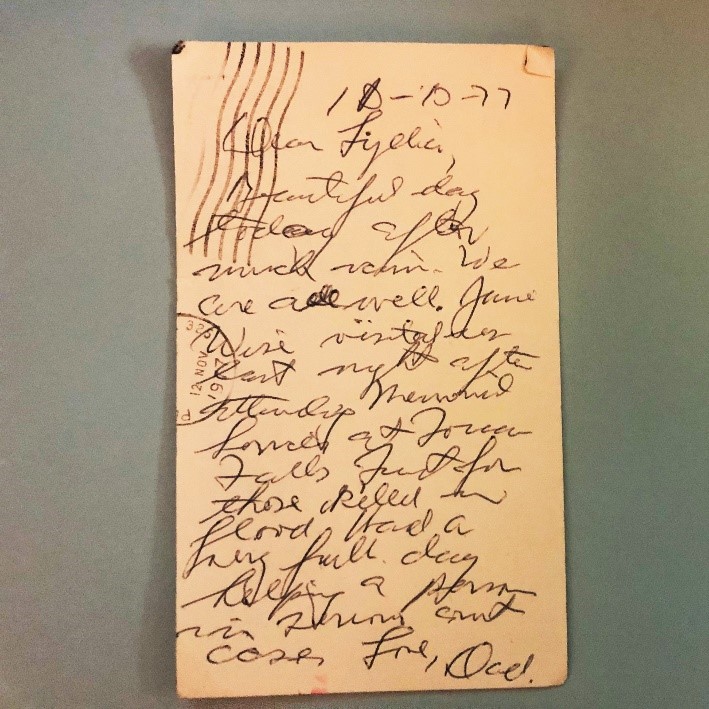 10-10-77
Dear Lydia,
Beautiful day
today after
much rain. We
are all well. June
Wise visited us
last night after
attending Memorial
Service at Toccoa
Falls Inst for
those killed in
flood Had a
very full day
helping a person
in serious court
cases Love, Dad.
325
12 NOV
197